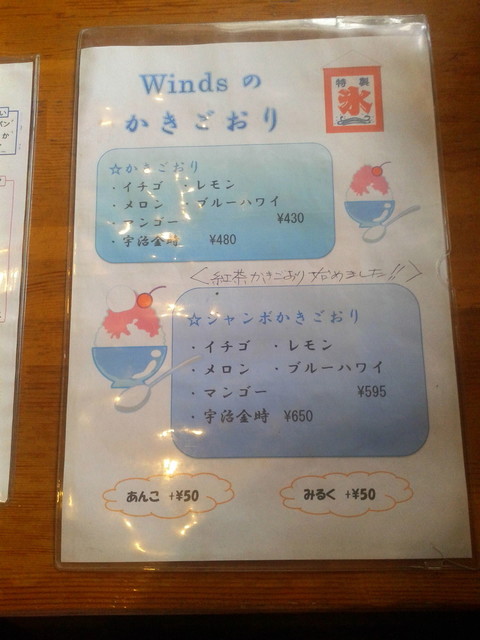 Winds の
かきごおり
特製
氷
☆かきごおり
・イチゴ ・レモン
・メロン ・ブルーハワイ
・マンゴー ¥430
・宇治金時 ¥480
<紅茶かきごおり始めました!!>
☆ジャンボかきごおり
・イチゴ ・レモン
・メロン ・ブルーハワイ
・マンゴー ¥595
・宇治金時 ¥650
あんこ +¥50
みるく +¥50